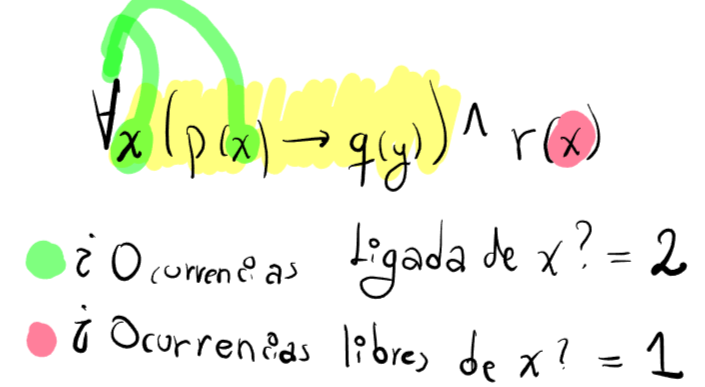 ∀x (p(x) → q(y)) ∧ r(x)
¿Ocurrencias Ligada de x? = 2
¿Ocurrencias libres de x? = 1